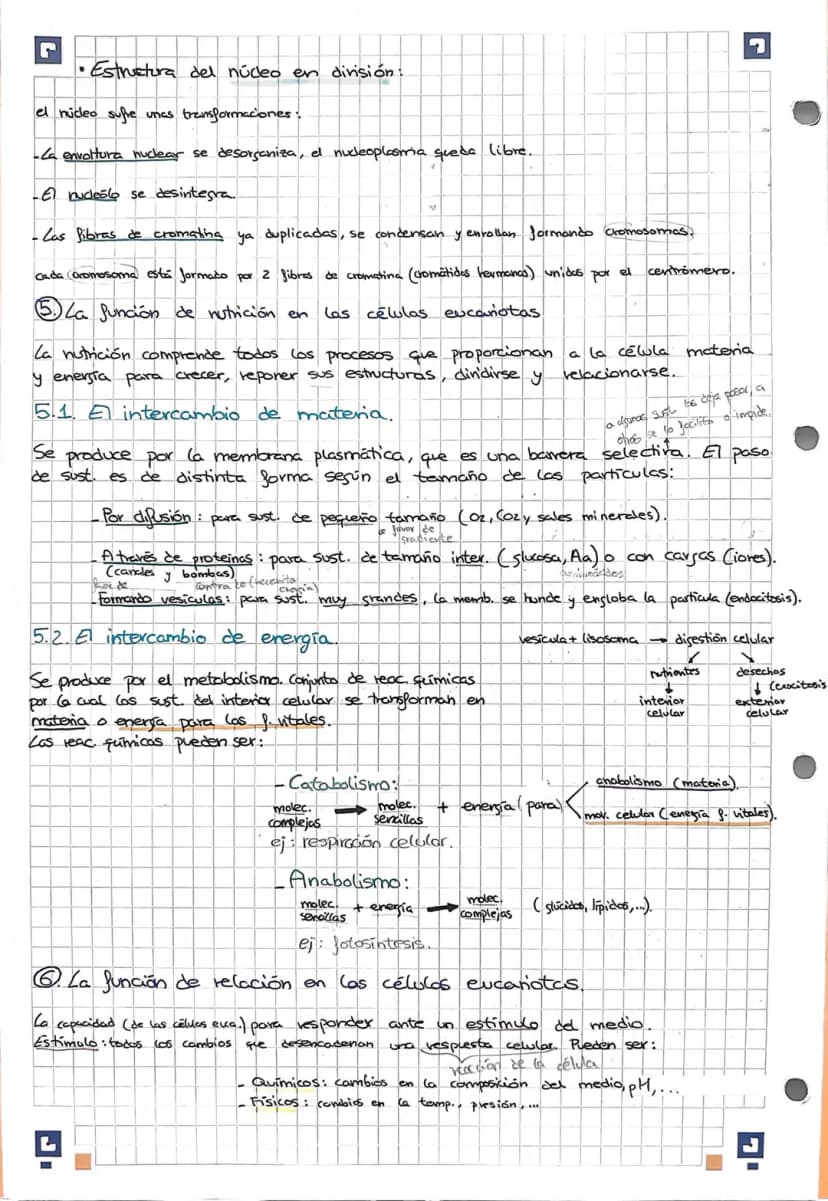 • Estructura del núcleo en división:
el núcleo sufre unas transformaciones:
- La envoltura nuclear se desorganiza, el nucleoplasma queda libre.
- El nucleólo se desintegra.
- Las fibras de cromatina ya duplicadas, se condensan y enrollan formando cromosomas;
cada cromosoma está formado por 2 fibras de cromatina (cromátidas hermanas) unidas por el centrómero.
5. La función de nutrición en las células eucariotas
La nutrición comprende todos los procesos que proporcionan a la célula materia
y energía para crecer, reponer sus estructuras, dividirse y relacionarse.
5.1. El intercambio de materia.
a algunas sust. las deja pasar, a
otras se lo facilita o impide.
Se produce por la membrana plasmática, que es una barrera selectiva. El paso
de sust. es de distinta forma según el tamaño de las partículas:
- Por difusión: para sust. de pequeño tamaño (O2, CO2 y sales minerales).
a favor de
gradiente
- A través de proteínas: para sust. de tamaño inter. (glucosa, Aa) o con cargas (iones).
(canales y bombas)
aminoácidos
contra de (necesita
energía)
- Formando vesículas: para sust. muy grandes, la memb. se hunde y engloba la partícula (endocitosis).
5.2. El intercambio de energía.
vesícula + lisosoma → digestión celular
nutrientes desechos
↓ ↓ (exocitosis
interior exterior
celular celular
Se produce por el metabolismo. Conjunto de reac. químicas
por la cual las sust. del interior celular se transforman en
materia o energía para las f. vitales.
Las reac. químicas pueden ser:
- Catabolismo:
molec. complejas → molec. sencillas + energía (para) < anabolismo (materia).
mov. celular (energía f. vitales).
ej: respiración celular.
- Anabolismo:
molec. sencillas + energía → molec. complejas (glúcidos, lípidos,...).
ej: fotosíntesis.
6. La función de relación en las células eucariotas.
La capacidad (de las células euca.) para responder ante un estímulo del medio.
Estímulo: todos los cambios que desencadenan una respuesta celular. Pueden ser:
reacción de la célula
- Químicos: cambios en la composición del medio, pH,...
- Físicos: cambios en la temp., presión,...